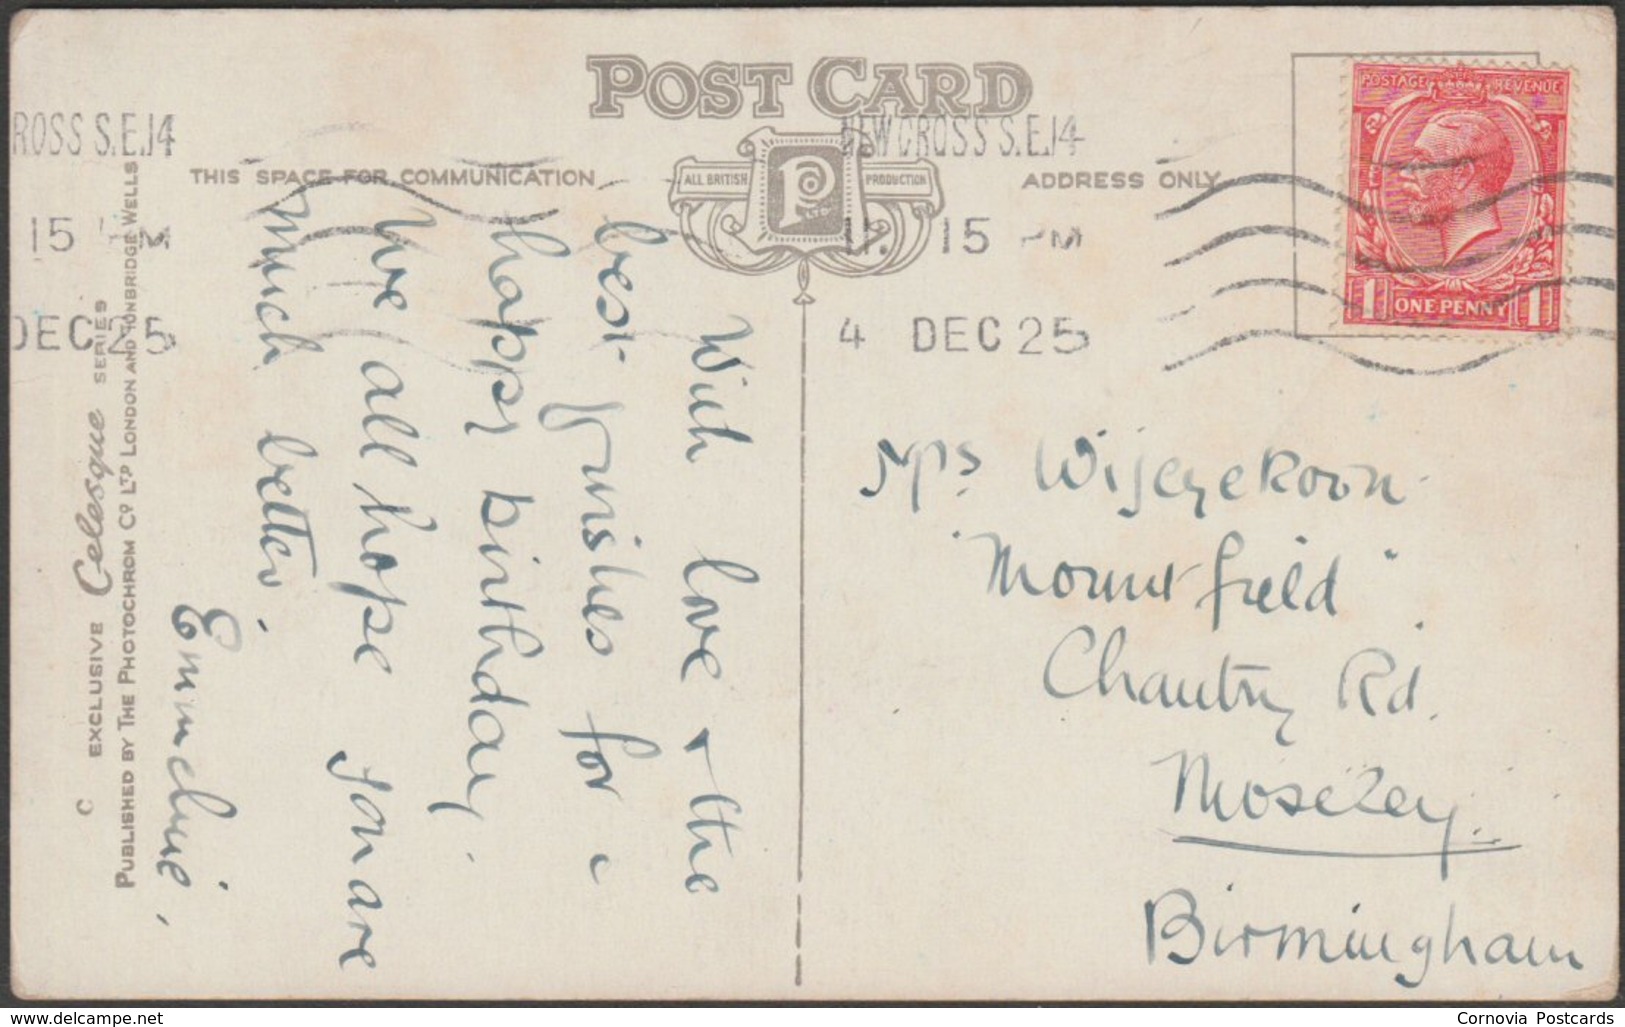 POST CARD
THIS SPACE FOR COMMUNICATION
ALL BRITISH
PRODUCTION
ADDRESS ONLY
ROSS S.E.14
15 PM
DEC 25
NEW CROSS S.E.14
11. 15 PM
4 DEC 25
POSTAGE REVENUE
1 ONE PENNY 1
With love & the
best wishes for a
happy birthday.
We all hope you are
much better.
Emmeline.
Mrs Wijeyekoon
"Mountfield"
Chantry Rd.
Moseley.
Birmingham
C EXCLUSIVE Celesque SERIES
PUBLISHED BY THE PHOTOCHROM CO. LTD LONDON AND TONBRIDGE WELLS
www.delcampe.net
Cornovia Postcards